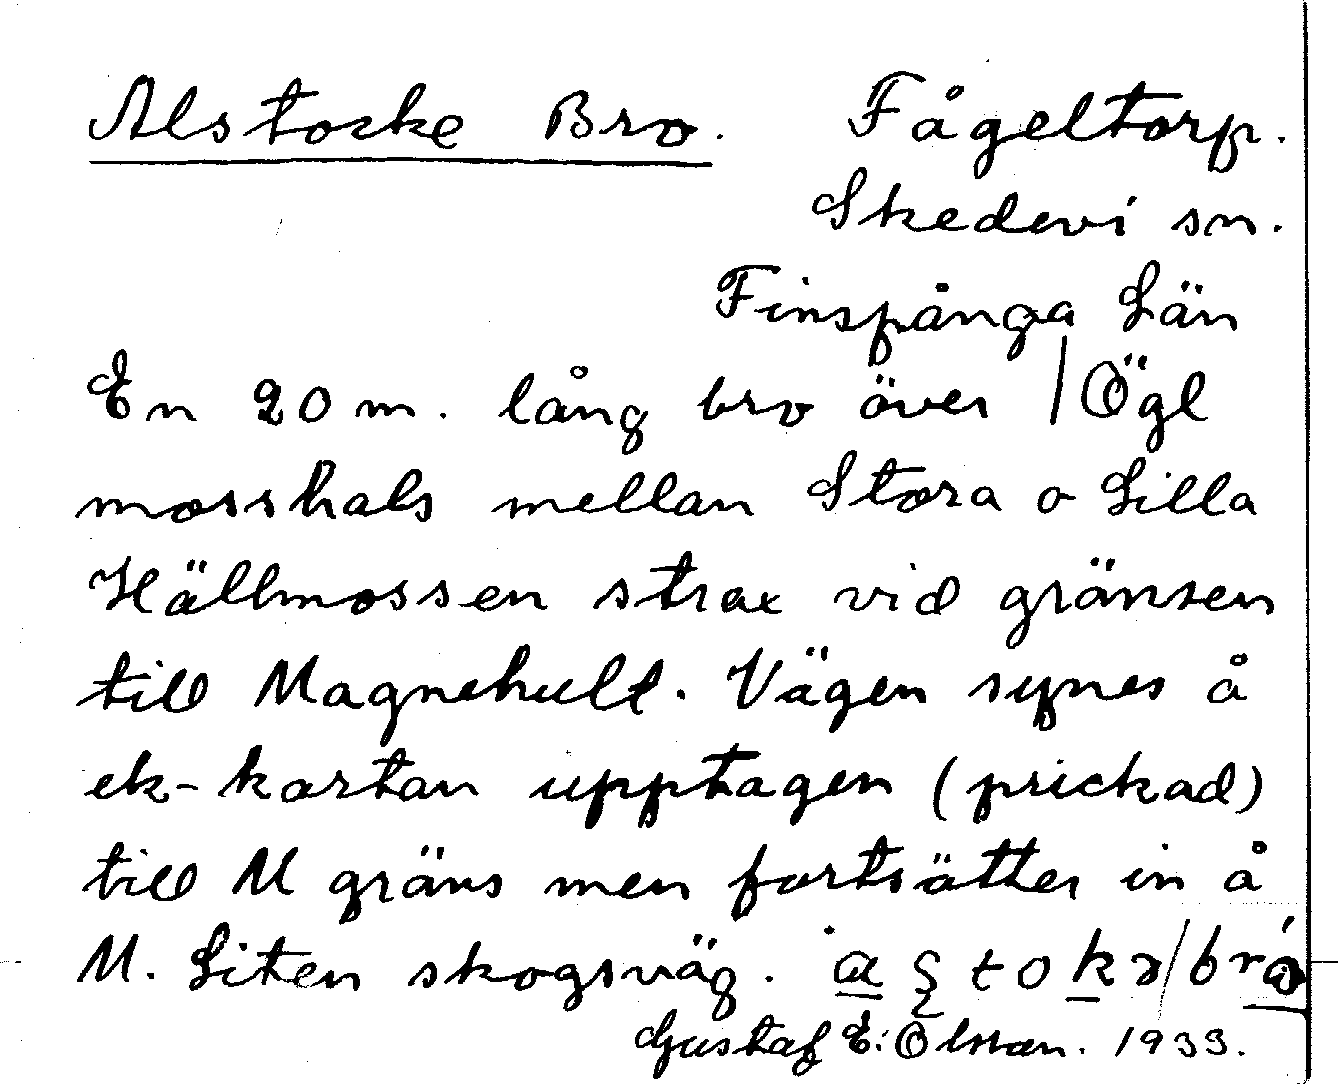 Alstocke Bro. Fågeltorp.
Skedevi sn.
Finspånga Län
En 20 m. lång bro över / Ögl
mosshals mellan Stora o Lilla
Hällmossen strax vid gränsen
till Magnehult. Vägen synes å
ek-kartan upptagen (prickad)
till M gräns men fortsätter in å
M. Liten skogsväg.
Gustaf E: Olsson. 1933.